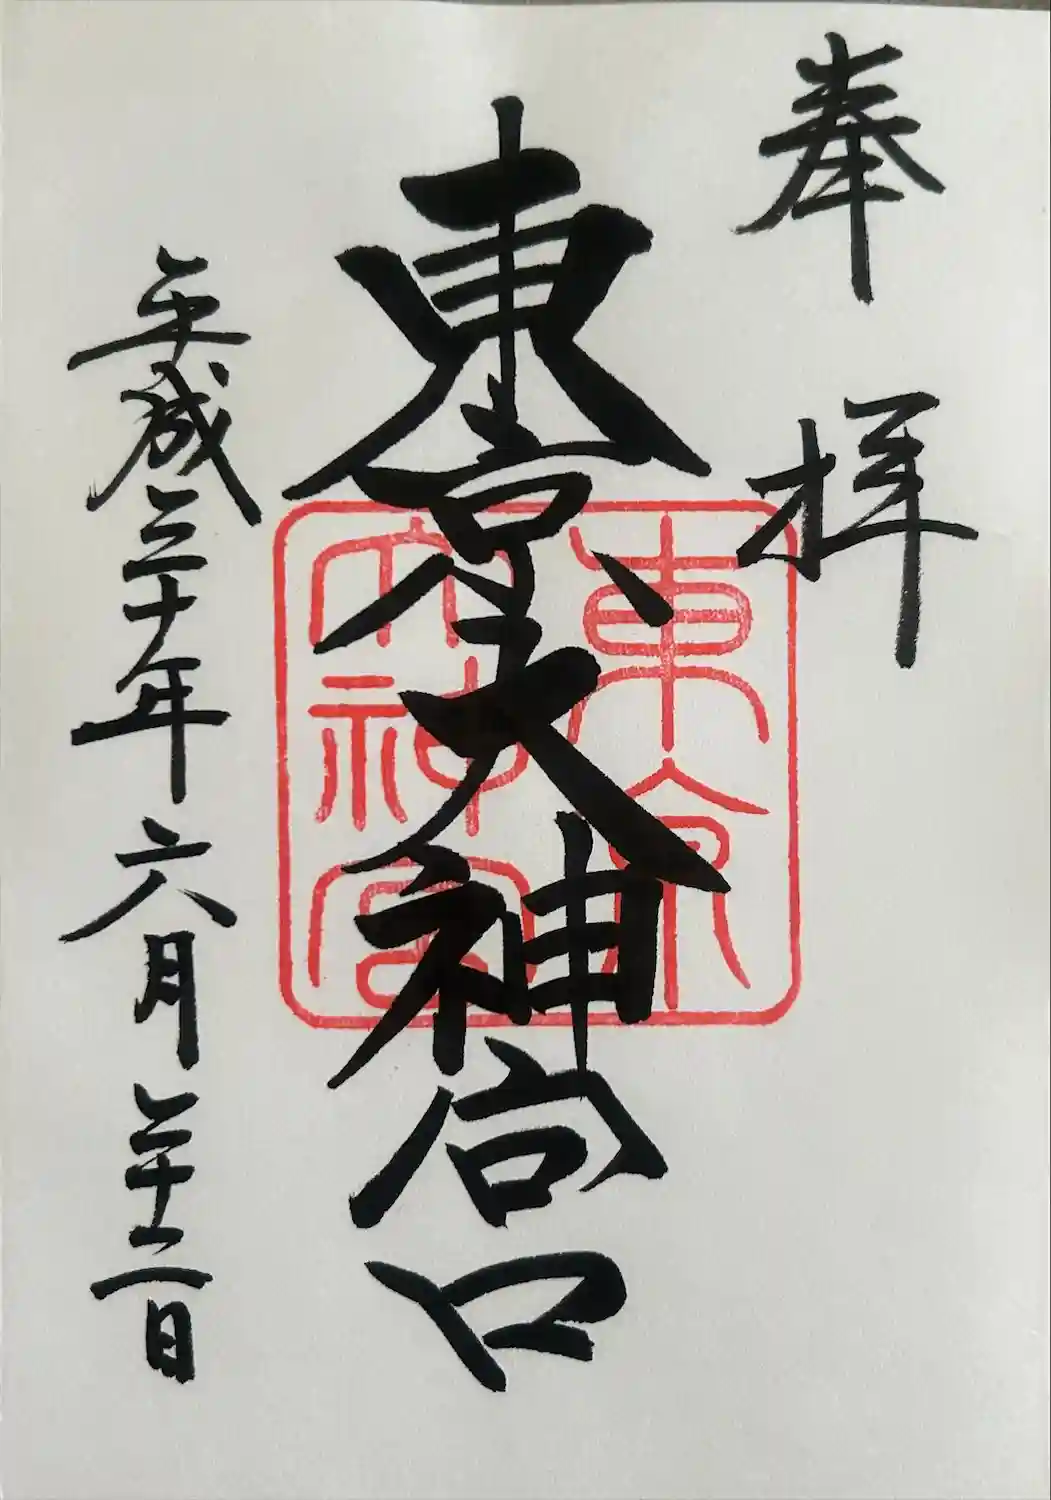 奉拝
東京大神宮
東京
大神宮
平成三十年六月二十二日